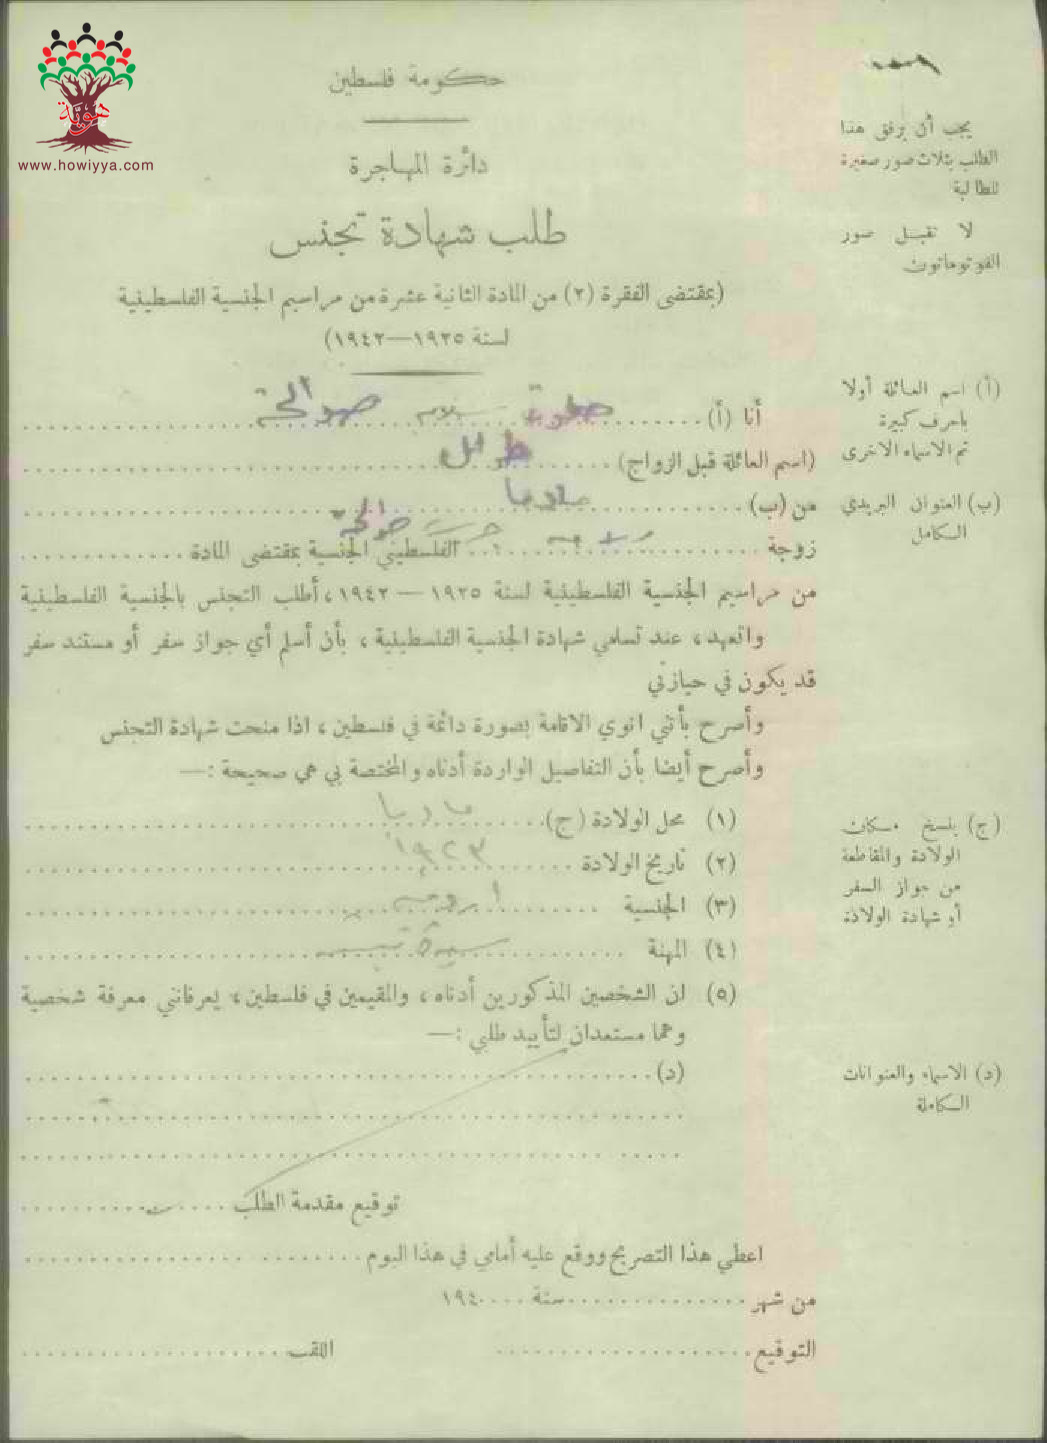 هوية
www.howiyya.com
حكومة فلسطين
دائرة المهاجرة
طلب شهادة تجنس
(بمقتضى الفقرة (٢) من المادة الثانية عشرة من مراسيم الجنسية الفلسطينية
لسنة ١٩٢٥—١٩٤٢)
يجب أن يرفق هذا
الطلب بثلاث صور صغيرة
للطالبة
لا تقبل صور
الفوتوماتون
(أ) اسم العائلة أولا
باحرف كبيرة
ثم الاسماء الاخرى
(ب) العنوان البريدي
الكامل
أنا (أ) صوالحة
(اسم العائلة قبل الزواج)
من (ب) مادبا
زوجة صوالحة الفلسطيني الجنسية بمقتضى المادة
من مراسيم الجنسية الفلسطينية لسنة ١٩٢٥ — ١٩٤٢، أطلب التجنس بالجنسية الفلسطينية
واتعهد، عند تسلمي شهادة الجنسية الفلسطينية، بأن أسلم أي جواز سفر أو مستند سفر
قد يكون في حيازتي
وأصرح بأنني انوي الاقامة بصورة دائمة في فلسطين، اذا منحت شهادة التجنس
وأصرح أيضا بأن التفاصيل الواردة أدناه والمختصة بي هي صحيحة :—
(١) محل الولادة (ج) مادبا
(٢) تاريخ الولادة ١٩٢٣
(٣) الجنسية اردنية
(٤) المهنة ست بيت
(ج) ينسخ مكان
الولادة والمقاطعة
من جواز السفر
أو شهادة الولادة
(٥) ان الشخصين المذكورين أدناه، والمقيمين في فلسطين، يعرفانني معرفة شخصية
وهما مستعدان لتأييد طلبي :—
(د)
(د) الاسماء والعنوانات
الكاملة
توقيع مقدمة الطلب
اعطي هذا التصريح ووقع عليه أمامي في هذا اليوم
من شهر سنة ١٩٤٠
التوقيع اللقب